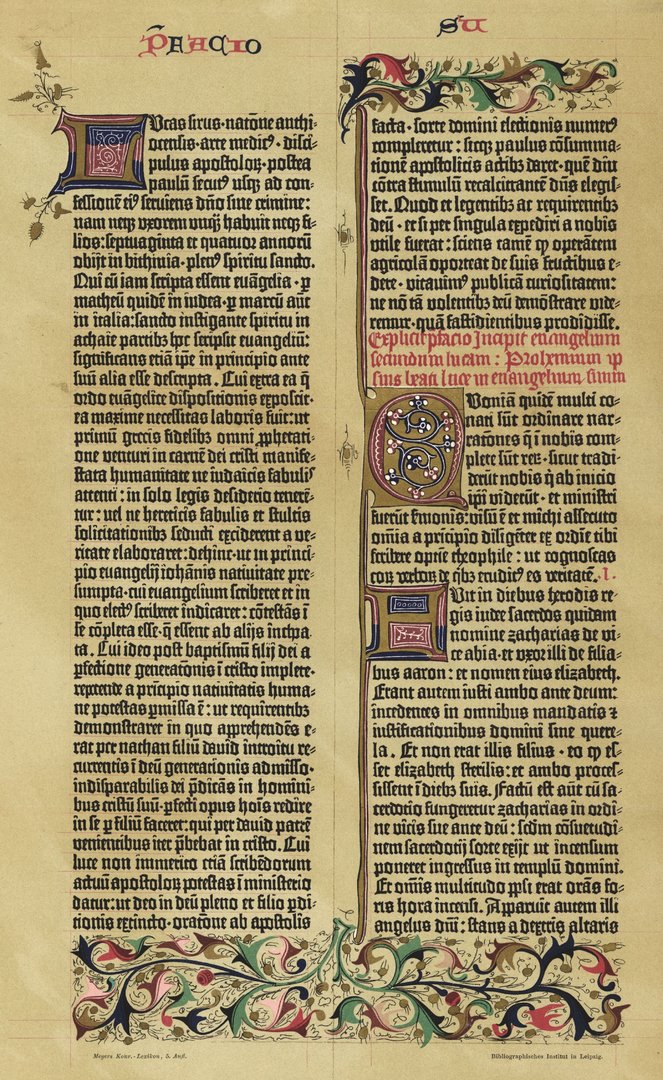 P̄FACIO
SU
Lucas sirus · natōne anthi⸗
ocensis · arte medicꝰ · disci⸗
pulus apostoloꝝ · postea
paulū secutꝰ usqꝫ ad con⸗
fessionē eiꝰ serviens dn̄o sine crimine :
nam neqꝫ vxorem unqͣꝫ habuit neqꝫ fi⸗
lios : septuaginta et quatuor annorū
obijt in bithinia · plenꝰ spiritu sancto.
Qui cū iam scripta essent euāgelia · ꝑ
matheū quidē in iudea · ꝑ marcū aūt
in italia : sancto instigante spiritu in
achaie partibꝫ hoc scripsit euangeliū :
significans etiā ip̄e in principio ante
suū alia esse descripta . Cui extra ea q̄
ordo euāgelice dispositionis exposcit ·
ea maxime necessitas laboris fuit : ut
primū grecis fidelibꝫ omni ꝓphetati⸗
one venturi in carnē dei cristi manife⸗
stata humanitate ne iudaicis fabulis
attenti : in solo legis desiderio tenerē⸗
tur : uel ne hereticis fabulis et stultis
solicitationibꝫ seducti exciderent a ve⸗
ritate elaboraret : dehinc · ut in princi⸗
pio euangelij iohānis natiuitate pre⸗
sumpta · cui euangelium scriberet et in
quo electꝰ scriberet indicaret : cōtestās ī
se cōpleta esse · q̄ essent ab alijs inchoa⸗
ta . Cui ideo post baptismū filij dei a
ꝑfectione generatōnis ī cristo implete ·
repetende a principio natiuitatis huma⸗
ne potestas ꝑmissa ē : ut requirentibꝫ
demonstraret in quo apprehendēs e⸗
rat per nathan filiū dauid introitu re⸗
currentis ī deū generationis admisso ·
indisparabilis dei p̄dicās in homini⸗
bus cristū suū · ꝑfecti opus hoīs redire
in se ꝑ filiū faceret : qui per dauid patrē
venientibus iter p̄bebat in cristo . Cui
luce non immerito etiā scribēdorum
actuū apostoloꝝ potestas ī ministerio
datur : ut deo in deū pleno et filio ꝑdi⸗
tionis extincto · oratōne ab apostolis
facta · sorte domini electionis numerꝰ
completur : sicqꝫ paulus cōsumma⸗
tionē apostolicis actibꝫ daret · quē diu
cōtra stimulū recalcitrantē dn̄s elegis⸗
set . Quod et legentibꝫ ac requirentibꝫ
deū · et si per singula expediri a nobis
vtile fuerat : sciens tamē qͥ operātem
agricolā oporteat de suis fructibus e⸗
dere · vitauimꝰ publicā curiositatem :
ne nō tā volentibꝫ deū demōstrare vide⸗
remur · quā fastidientibus prodidisse.
Explicit p̄facio Incipit euangelium
secundum lucam : Prohemium ip
sius beati luce in euangelium suum
Quoniā quidē multi co⸗
nati sūt ordinare nar⸗
rationes q̄ ī nobis com⸗
plete sūt reꝝ · sicut tradi⸗
derūt nobis q̄ ab inicio
ip̄i viderūt · et ministri
fuerūt sermonis : visū ē et michi assecuto
omīa a principio diligēter ex ordīe tibi
scribere optīe theophile : ut cognoscas
eoꝝ verboꝝ de qͥbꝫ eruditꝰ es veritatē . I .
Fuit in diebus herodis re⸗
gis iudee sacerdos quidam
nomine zacharias de vi⸗
ce abia · et vxor illi de filia⸗
bus aaron : et nomen eius elizabeth.
Erant autem iusti ambo ante deum :
incedētes in omnibus mandatis ⁊
iustificationibus domini sine quere⸗
la . Et non erat illis filius · eo qͥ es⸗
set elizabeth sterilis : et ambo proces⸗
sissent ī diebꝫ suis . Factū est aūt cū sa⸗
cerdotio fungeretur zacharias in ordī⸗
ne vicis sue ante deū : scd̄m cōsuetudi⸗
nem sacerdotij sorte exijt ut incensum
poneret ingressus in templū domini.
Et om̄is multitudo ppl̄i erat orās fo⸗
ris hora incensi . Apparuit autem illi
angelus dn̄i : stans a dextris altaris
Meyers Konv.-Lexikon, 5. Aufl.
Bibliographisches Institut in Leipzig.